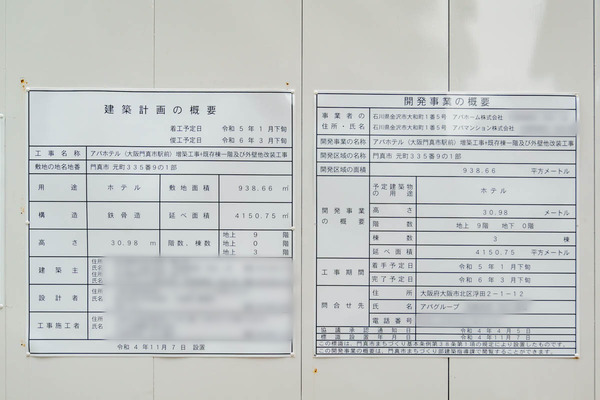 建築計画の概要
着工予定日 令和 5年 1月下旬
竣工予定日 令和 6年 3月下旬
工事名称 アパホテル〈大阪門真市駅前〉増築工事+既存棟一階及び外壁他改装工事
敷地の地名地番 門真市 元町335番9の1部
用途 ホテル 敷地面積 938.66 ㎡
構造 鉄骨造 延べ面積 4150.75 ㎡
高さ 30.98 m 階数,棟数 地上 9 階
地上 0 階
地上 3 階
建築主 住所
氏名
設計者 住所
氏名
工事施工者 住所
氏名
令和 4年11月 7日 設置
開発事業の概要
事業者の住所・氏名 石川県金沢市大和町1番5号 アパホーム株式会社
石川県金沢市大和町1番5号 アパマンション株式会社
開発事業の名称 アパホテル〈大阪門真市駅前〉増築工事+既存棟一階及び外壁他改装工事
開発区域の名称 門真市 元町335番9の1部
開発区域の面積 938.66 平方メートル
開発事業の概要 予定建築物の用途 ホテル
高さ 30.98 メートル
階数 地上 9階 地下 0階
棟数 3 棟
延べ面積 4150.75 平方メートル
工事期間 着手予定日 令和 5年 1月下旬
完了予定日 令和 6年 3月下旬
問合せ先 住所 大阪府大阪市北区浮田2-1-12
氏名 アパグループ
電話番号
協議承認通知日 令和 4年 4月 5日
標識設置年月日 令和 4年11月 7日
この標識は、門真市まちづくり基本条例第36条第1項の規定により設置したものです。
この開発事業の概要は、門真市まちづくり部建築指導課で閲覧することができます。